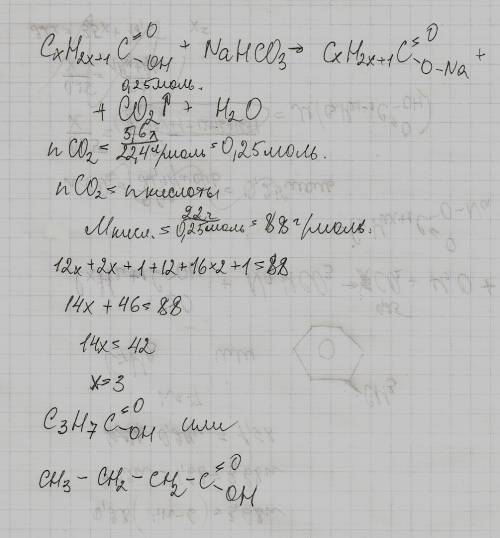 CxH2x+1 C=O OH + NaHCO3 → CxH2x+1 C=O O-Na +
0,25 моль.
+ CO2↑ + H2O
n CO2 = 5,6 л / 22,4 л/моль = 0,25 моль.
n CO2 = n кислоты
M кисл. = 22 г / 0,25 моль = 88 г/моль.
12x + 2x + 1 + 12 + 16×2 + 1 = 88
14x + 46 = 88
14x = 42
x = 3
C3H7 C=O OH или
CH3 - CH2 - CH2 - C=O OH